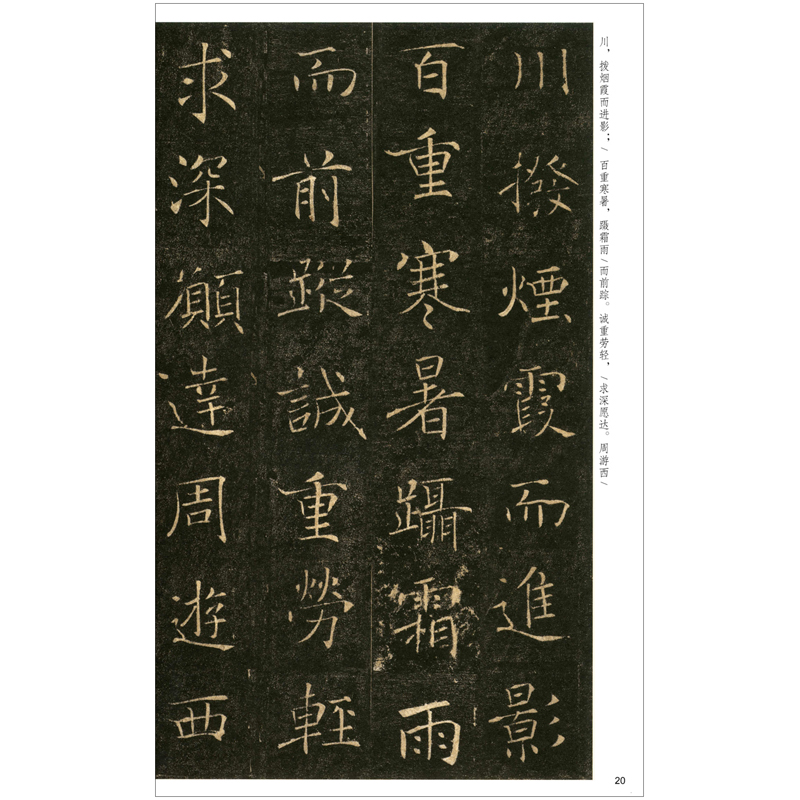 川，拨烟霞而进影；/百重寒暑，蹑霜雨/而前踪。诚重劳轻，/求深愿达。周游西/
川撥煙霞而進影
百重寒暑躡霜雨
而前蹤誠重勞輕
求深願達周遊西
20